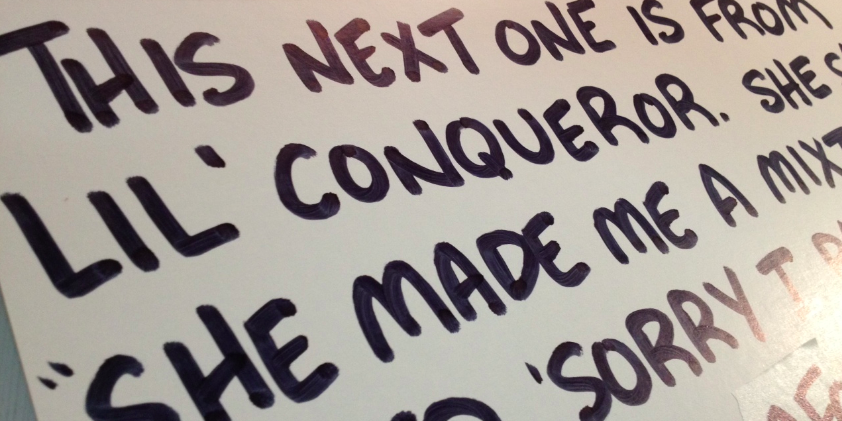 THIS NEXT ONE IS FROM
LIL' CONQUEROR. SHE
"SHE MADE ME A
'SORRY I